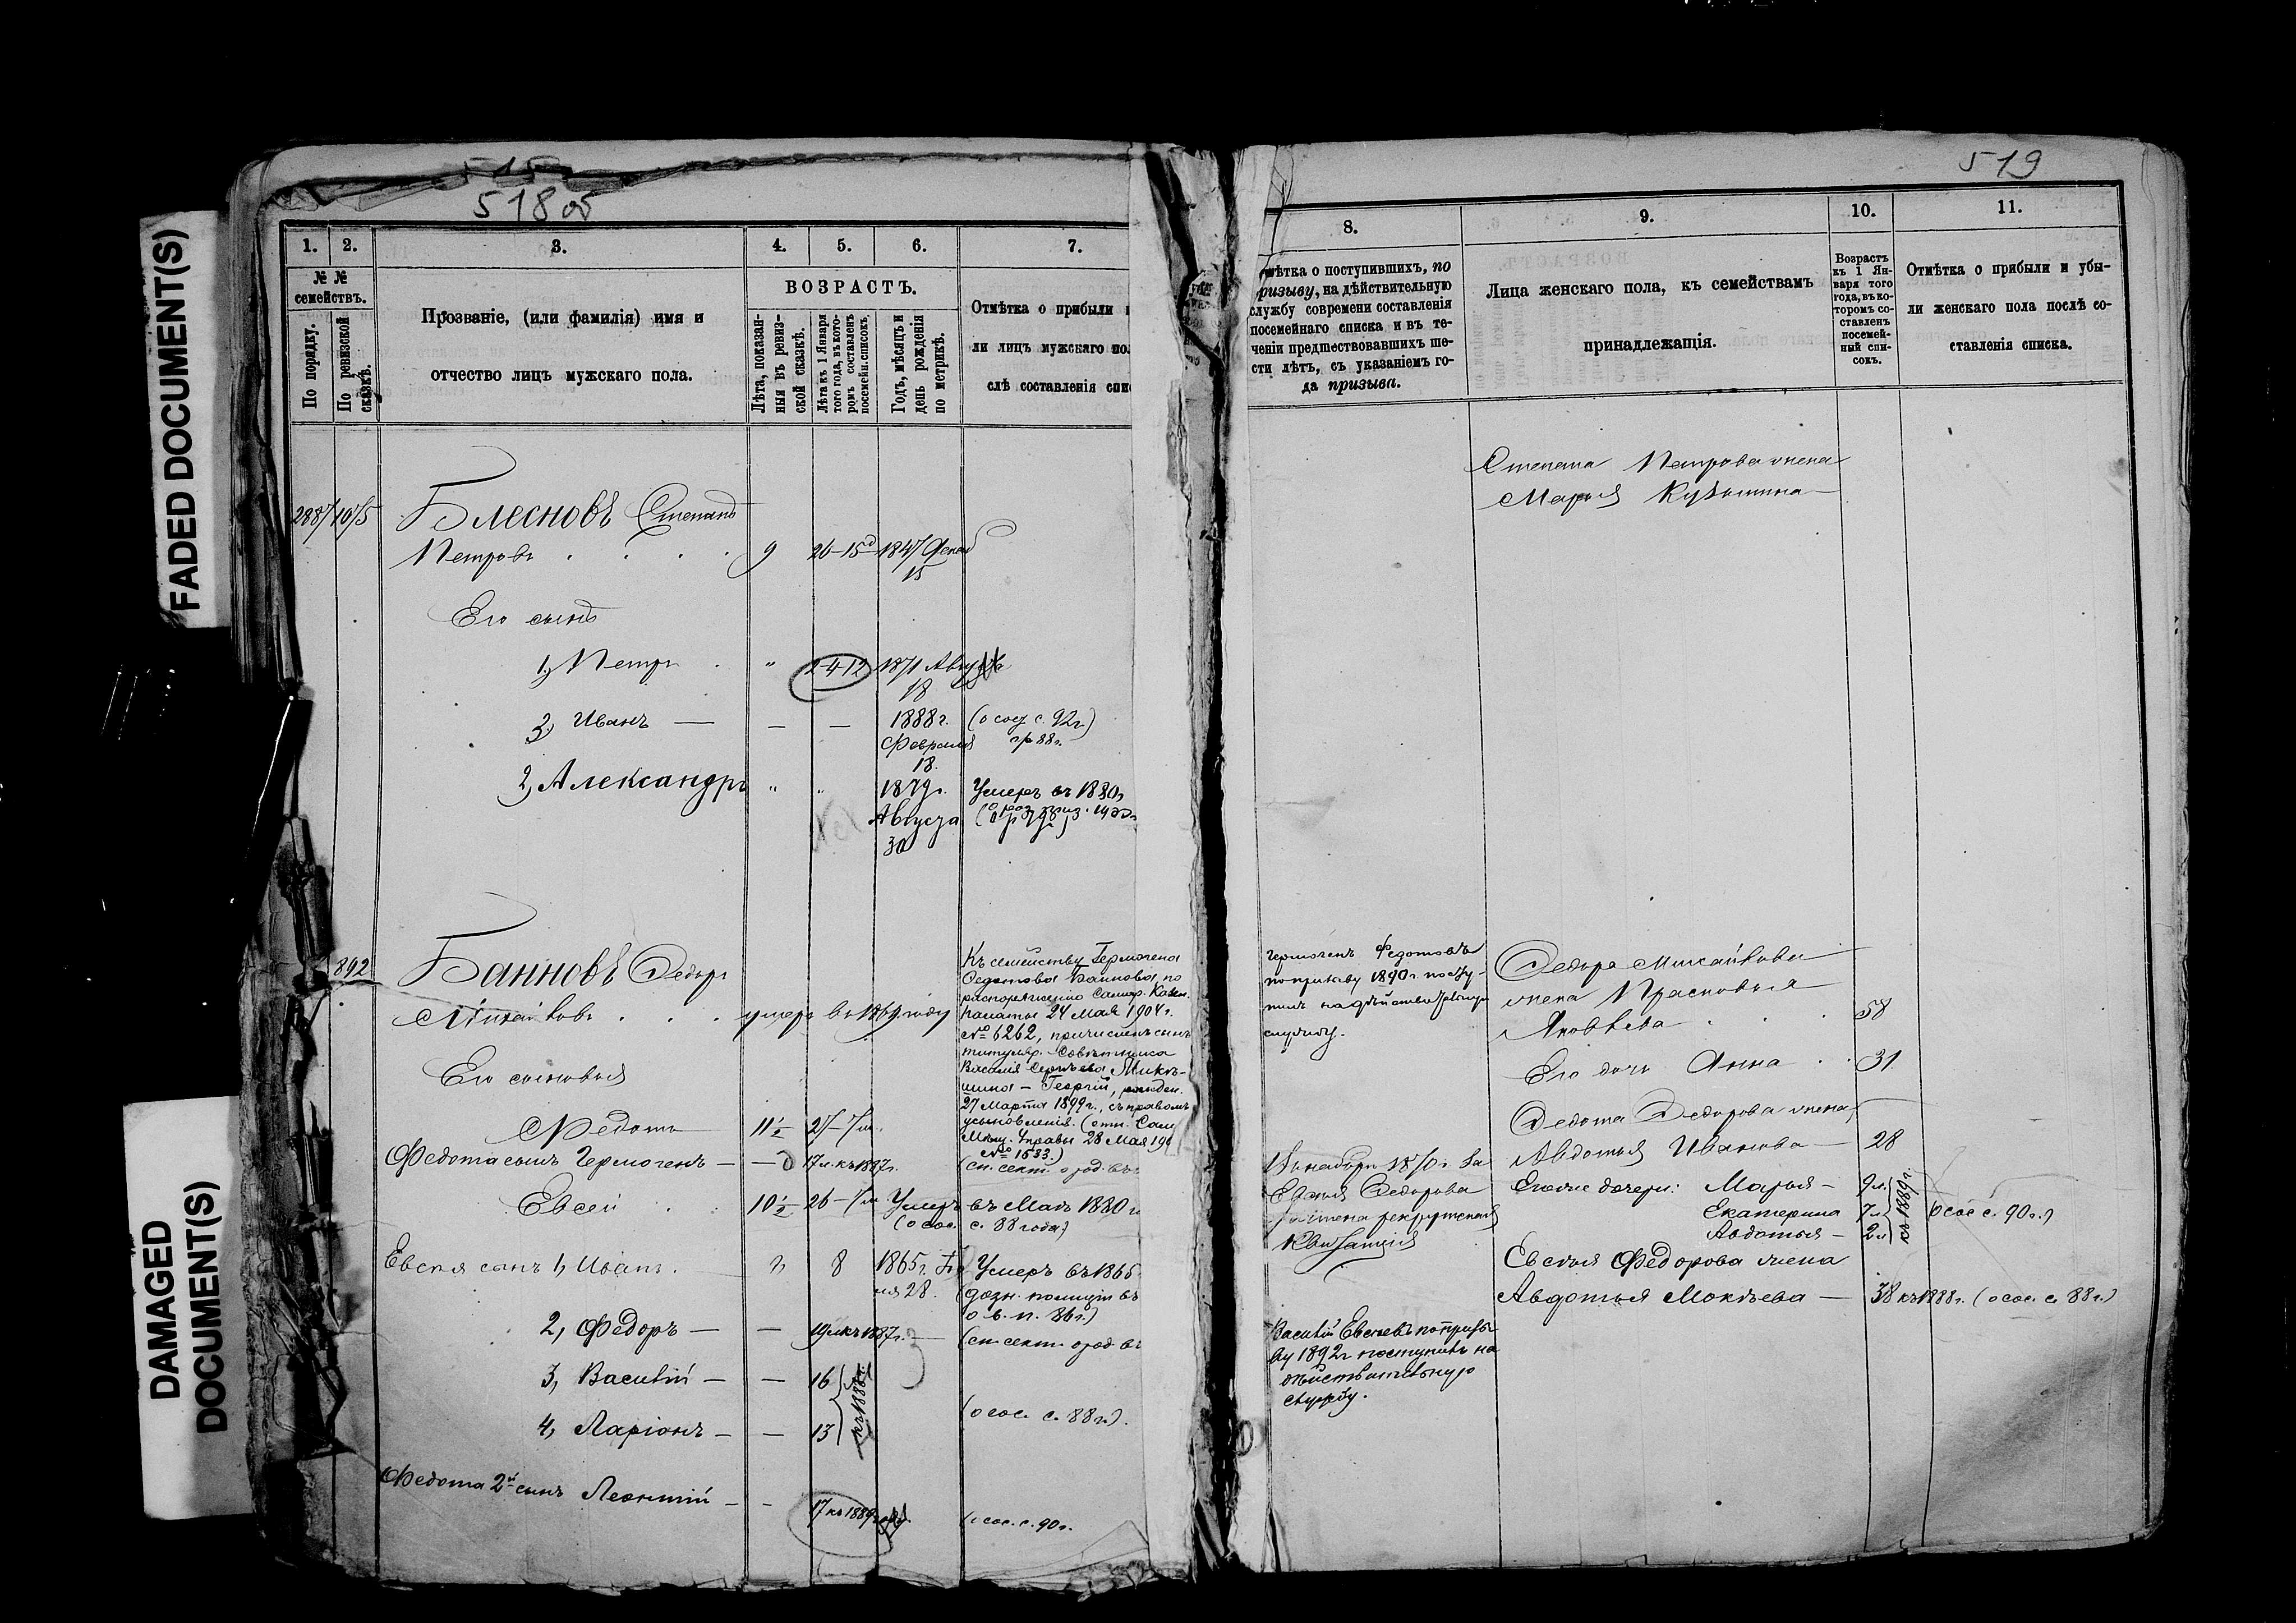 FADED DOCUMENT(S)
DAMAGED
DOCUMENT(S)
515
518 об
1. 2. 3. 4. 5. 6. 7.
№ №
семействъ.
По порядку.
По ревизской
сказкѣ.
Прозваніе, (или фамилія) имя и
отчество лицъ мужскаго пола.
ВОЗРАСТЪ.
Лѣта, показан-
ныя въ ревиз-
ской сказкѣ.
Лѣта къ 1 Января
того года, въ кото-
ромъ составленъ
посемейн. списокъ.
Годъ, мѣсяцъ и
день рожденія
по метрикѣ.
Отмѣтка о прибыли
ли лицъ мужскаго по
слѣ составленія спис
288 1015 Блесновъ Степанъ
Петровъ . . . . 9 26-15д 1847 Декаб
15
Его сынъ
1, Петръ . " 2-4-12 1871 Августа
18
3, Иванъ — — — 1888 г. (о сос. с. 92 г.)
Февраля гр 88 г.
18.
2, Александръ " " 1879 г. Умеръ въ 1880 г
Августа
30
892 Банновъ Федоръ
Михайловъ . . . умеръ въ 1869 году
Его сыновья
Федотъ 11½ 27-7 м.
Федота сынъ Гермогенъ — — 17 л. къ 1887 г. (сп. сект. о род. въ
Евсей . . 10½ 26-7 м Умеръ въ Маѣ 1880 г
(о сос. с. 88 года)
Евсея сынъ 1, Иванъ. " 8 1865 г. Умеръ въ 1865
ля 28. (дозн. полиціи въ
о в. п. 86 г.)
2, Федоръ — — 19 л. къ 1887 г. — (сп. сект. о род. въ
3, Василій — — 16
къ 1888 г.
4, Ларіонъ — — 13 (о сос. с. 88 г.).
Федота 2й сынъ Леонтій — - 17 къ 1889 (о сос. с. 90 г.
Къ семейству Гермогена
Федотова Баннова по
распоряженію Самар. Казен.
Палаты 24 Мая 1904 г.
№ 6262, причисленъ сынъ
титуляр. Совѣтника
Василія Сергѣева Микѣ-
шина — Георгій, рожден.
27 Марта 1899 г., съ правомъ
усыновленія. (отн. Сам
Мѣщ. Управы 28 Мая 190
№ 1533.)
519
8. 9. 10. 11.
мѣтка о поступившихъ, по
ризыву, на дѣйствительную
службу современи составленія
посемейнаго списка и въ те-
ченіи предшествовавшихъ ше-
сти лѣтъ, съ указаніемъ го-
да призыва.
Лица женскаго пола, къ семействамъ
принадлежащія.
Возрастъ
къ 1 Ян-
варя того
года, въ ко-
торомъ со-
ставленъ
посемей-
ный спи-
сокъ.
Отмѣтка о прибыли и убы-
ли женскаго пола послѣ со-
ставленія списка.
Степана Петрова жена
Марья Кузьмина —
Гермогенъ Федотовъ
по призыву 1890 г. посту-
пилъ на дѣйствительную
службу.
Федора Михайлова
жена Прасковья
Яковлева . . . 58
Его дочь Анна . . 31
Федота Федорова жена
Авдотья Иванова — 28
Январь 1870 г. за
Евсея Федорова
зачтена рекрутская
квитанція
Его же дочери: Марья — 9 л.
Екатерина 7 л
Авдотья — 2 л
къ 1889 г.
(о сос с. 90 г.)
Евсея Федорова жена
Авдотья Мокѣева — 38 къ 1888 г. (о сос. с. 88 г.)
Василій Евсеевъ по призы-
ву 1892 г поступилъ на
дѣйствительную
службу.